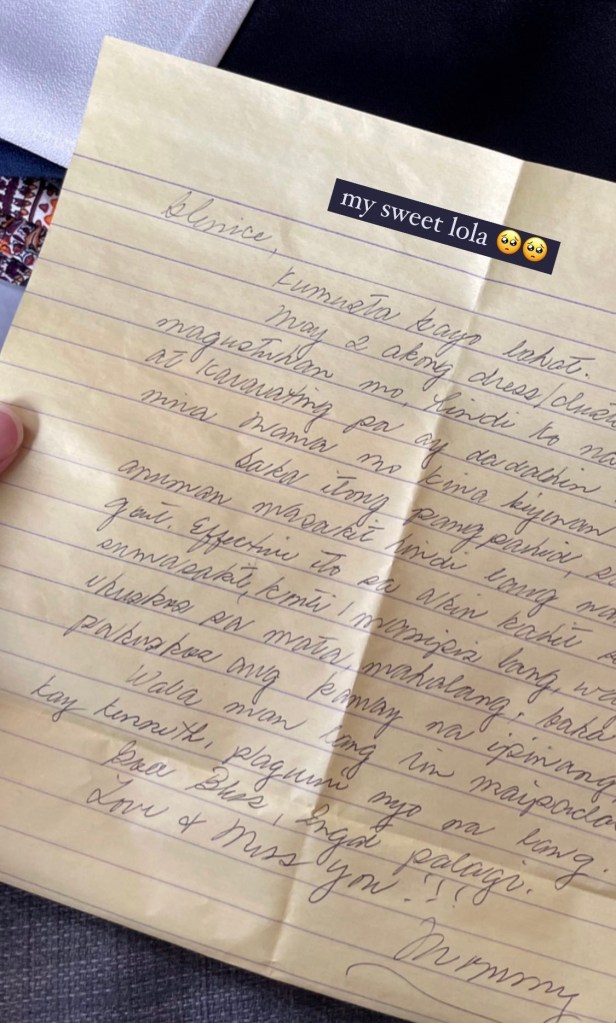 my sweet lola 🥺🥺
Glenice,
Kumusta kayo lahat.
May 2 akong dress/dust
magustuhan mo, hindi ko na
at kararating pa ay dadalhin
nina mama mo kina biyenan
Baka itong pangpahid, s
anuman masakit hindi lang na
gout. Effective ito sa akin kahit s
sumasakit, konti, manipis lang, w
ikuskos sa mata, mahalang; baka
pakuskos ang kamay na ipinang
Wala man ang im maipada
kay Kenneth, paguwi nyo na lang.
God Bless, Ingat palagi.
Love & Miss you!!!
Mommy